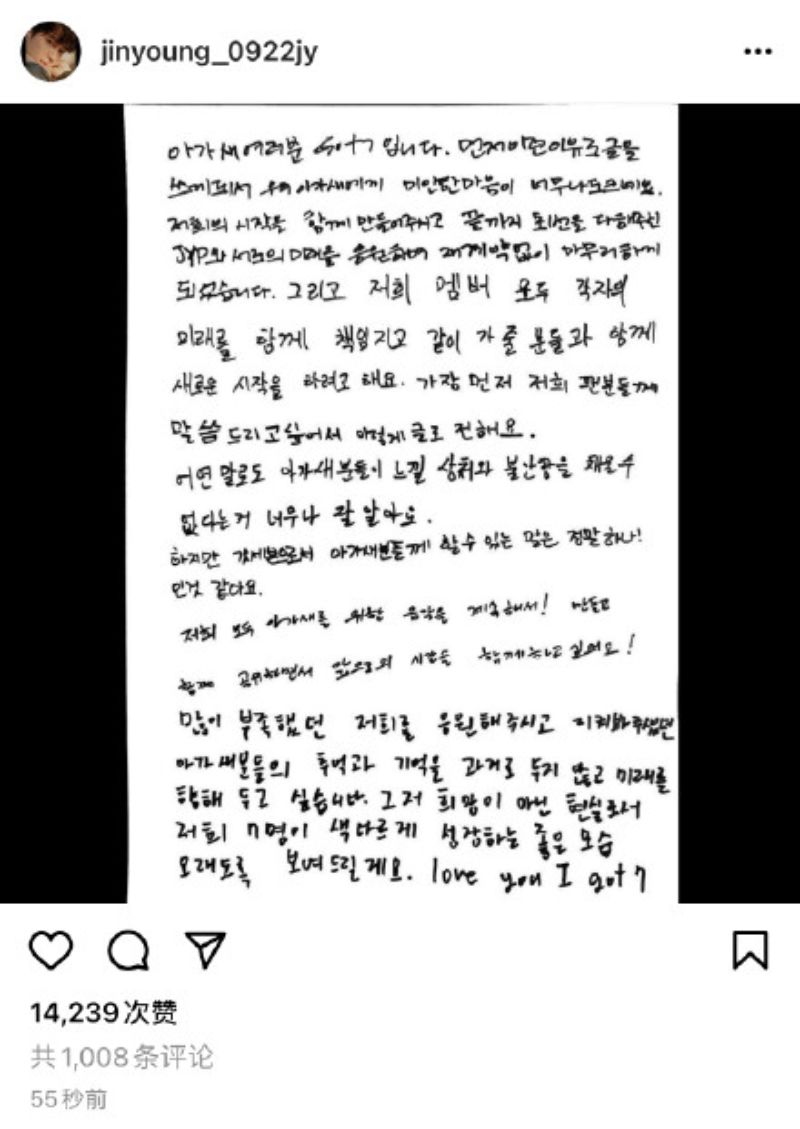 jinyoung_0922jy
아가새여러분 Got7입니다. 먼저 이런이유로글을
쓰게되서 우리 아가새에게 미안한마음이 너무나도크네요.
저희의 시작을 함께 만들어주시고 끝까지 최선을 다해주신
JYP와 서로의 미래를 응원하며 재계약없이 마무리하게
되었습니다. 그리고 저희 멤버 모두 각자의
미래를 함께 책임지고 같이 가 줄 분들과 함께
새로운 시작을 하려고 해요. 가장 먼저 저희 팬분들께
말씀드리고싶어서 이렇게 글로 전해요.
어떤 말로도 아가새분들이 느낄 상처와 불안감을 채울수
없다는거 너무나 잘 알아요.
하지만 갓세븐으로서 아가새분들께 할수 있는 말은 정말하나!
인것 같아요.
저희 모두 아가새를 위한 음악을 계속해서! 만들고
함께 공유하면서 앞으로의 시간을 함께하고 싶어요!
많이 부족했던 저희를 응원해주시고 지켜봐주셨던
아가새분들의 추억과 기억을 과거로 두지 않고 미래를
향해 두고 싶습니다. 그저 희망이 아닌 현실로서
저희 7명이 색다르게 성장하는 좋은 모습
오래도록 보여드릴게요. love you I got7
14,239次赞
共1,008条评论
55秒前